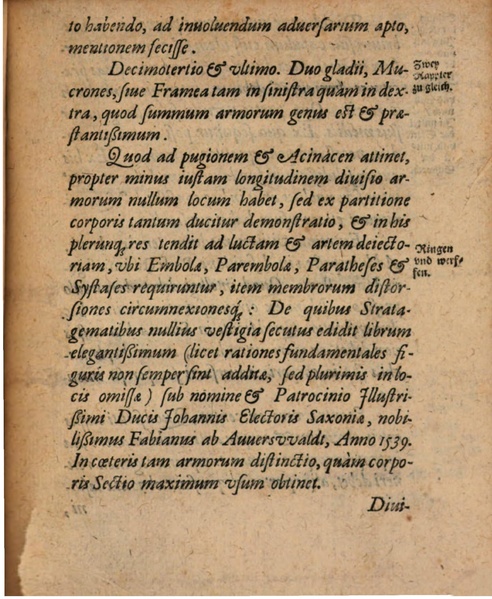 to habendo, ad inuoluendum aduerſarium apto,
mentionem feciſſe.
Decimotertio & vltimo. Duo gladii, Mu-
crones, ſiue Framea tam in ſiniſtra quàm in dex-
tra, quod ſummum armorum genus est & præ-
ſtantißimum.
Zwey
Rappier
zu gleich.
Quod ad pugionem & Acinacen attinet,
propter minus iuſtam longitudinem diuiſio ar-
morum nullum locum habet, ſed ex partitione
corporis tantum ducitur demonſtratio, & in his
plerunq; res tendit ad luctam & artem deiecto-
riam, vbi Embolæ, Parembolæ, Paratheſes &
Syſtaſes requiruntur, item membrorum diſtor-
ſiones circumnexionesq́;: De quibus Strata-
gematibus nullius veſtigia ſecutus edidit librum
elegantißimum (licet rationes fundamentales fi-
guris non ſemper ſint additæ, ſed plurimis in lo-
cis omiſſæ) ſub nomine & Patrocinio Jlluſtri-
ßimi Ducis Johannis Electoris Saxoniæ, nobi-
lißimus Fabianus ab Auuersvvaldt, Anno 1539.
In cœteris tam armorum diſtinctio, quàm corpo-
ris Sectio maximum vſum obtinet.
Ringen
vnd werf-
fen.
Diui-